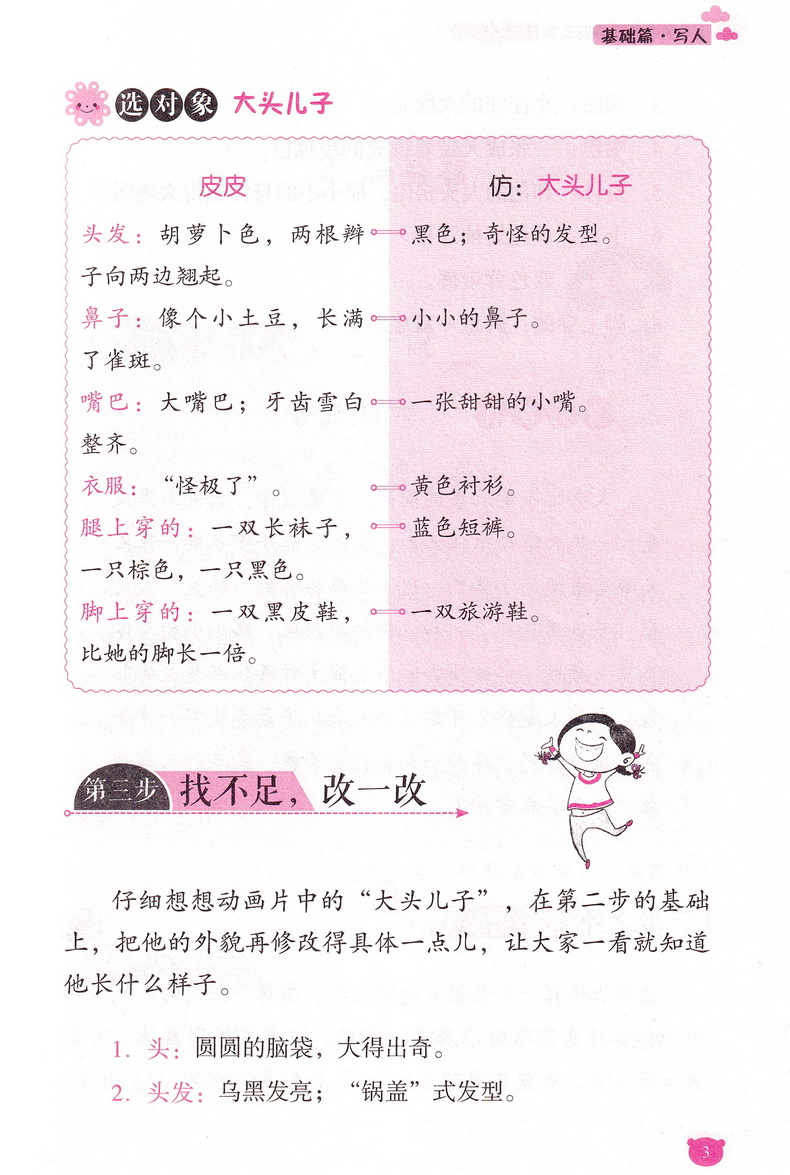 基础篇·写人
选对象 大头儿子
皮皮 仿：大头儿子
头发：胡萝卜色，两根辫 黑色；奇怪的发型。
子向两边翘起。
鼻子：像个小土豆，长满 小小的鼻子。
了雀斑。
嘴巴：大嘴巴；牙齿雪白 一张甜甜的小嘴。
整齐。
衣服：“怪极了”。 黄色衬衫。
腿上穿的：一双长袜子， 蓝色短裤。
一只棕色，一只黑色。
脚上穿的：一双黑皮鞋， 一双旅游鞋。
比她的脚长一倍。
第三步 找不足，改一改
仔细想想动画片中的“大头儿子”，在第二步的基础
上，把他的外貌再修改得具体一点儿，让大家一看就知道
他长什么样子。
1. 头：圆圆的脑袋，大得出奇。
2. 头发：乌黑发亮；“锅盖”式发型。
3